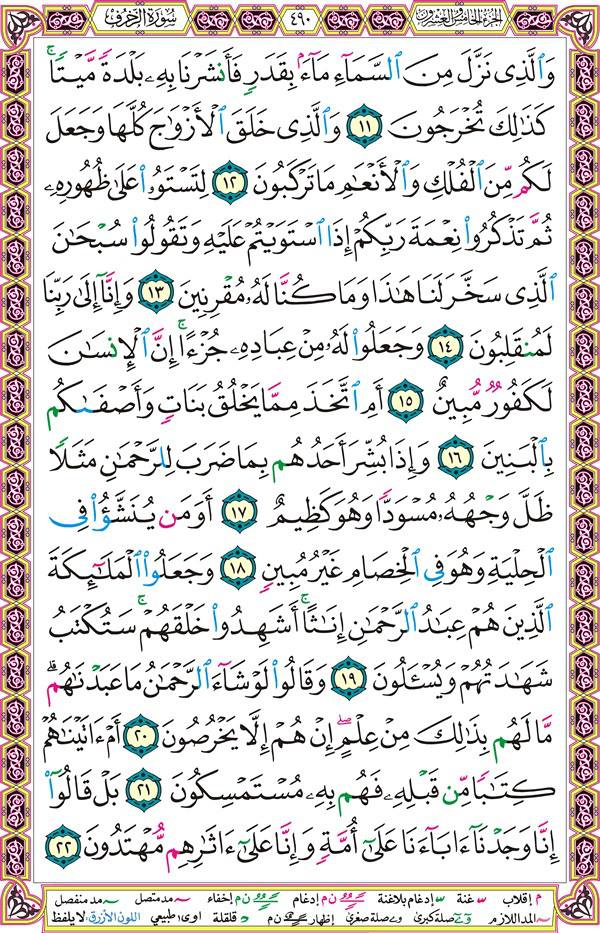 الجزء الخامس والعشرون
٤٩٠
سورة الزخرف
وَٱلَّذِى نَزَّلَ مِنَ ٱلسَّمَآءِ مَآءًۢ بِقَدَرٍۢ فَأَنشَرْنَا بِهِۦ بَلْدَةًۭ مَّيْتًۭا ۚ
كَذَٰلِكَ تُخْرَجُونَ ١١ وَٱلَّذِى خَلَقَ ٱلْأَزْوَٰجَ كُلَّهَا وَجَعَلَ
لَكُم مِّنَ ٱلْفُلْكِ وَٱلْأَنْعَٰمِ مَا تَرْكَبُونَ ١٢ لِتَسْتَوُۥا۟ عَلَىٰ ظُهُورِهِۦ
ثُمَّ تَذْكُرُوا۟ نِعْمَةَ رَبِّكُمْ إِذَا ٱسْتَوَيْتُمْ عَلَيْهِ وَتَقُولُوا۟ سُبْحَٰنَ
ٱلَّذِى سَخَّرَ لَنَا هَٰذَا وَمَا كُنَّا لَهُۥ مُقْرِنِينَ ١٣ وَإِنَّآ إِلَىٰ رَبِّنَا
لَمُنقَلِبُونَ ١٤ وَجَعَلُوا۟ لَهُۥ مِنْ عِبَادِهِۦ جُزْءًا ۚ إِنَّ ٱلْإِنسَٰنَ
لَكَفُورٌۭ مُّبِينٌ ١٥ أَمِ ٱتَّخَذَ مِمَّا يَخْلُقُ بَنَاتٍۢ وَأَصْفَىٰكُم
بِٱلْبَنِينَ ١٦ وَإِذَا بُشِّرَ أَحَدُهُم بِمَا ضَرَبَ لِلرَّحْمَٰنِ مَثَلًۭا
ظَلَّ وَجْهُهُۥ مُسْوَدًّۭا وَهُوَ كَظِيمٌ ١٧ أَوَمَن يُنَشَّؤُا۟ فِى
ٱلْحِلْيَةِ وَهُوَ فِى ٱلْخِصَامِ غَيْرُ مُبِينٍۢ ١٨ وَجَعَلُوا۟ ٱلْمَلَٰٓئِكَةَ
ٱلَّذِينَ هُمْ عِبَٰدُ ٱلرَّحْمَٰنِ إِنَٰثًا ۚ أَشَهِدُوا۟ خَلْقَهُمْ ۚ سَتُكْتَبُ
شَهَٰدَتُهُمْ وَيُسْـَٔلُونَ ١٩ وَقَالُوا۟ لَوْ شَآءَ ٱلرَّحْمَٰنُ مَا عَبَدْنَٰهُم ۗ
مَّا لَهُم بِذَٰلِكَ مِنْ عِلْمٍ ۖ إِنْ هُمْ إِلَّا يَخْرُصُونَ ٢٠ أَمْ ءَاتَيْنَٰهُمْ
كِتَٰبًۭا مِّن قَبْلِهِۦ فَهُم بِهِۦ مُسْتَمْسِكُونَ ٢١ بَلْ قَالُوٓا۟
إِنَّا وَجَدْنَآ ءَابَآءَنَا عَلَىٰٓ أُمَّةٍۢ وَإِنَّا عَلَىٰٓ ءَاثَٰرِهِم مُّهْتَدُونَ ٢٢
إقلاب غنة إدغام بلاغنة ن م إدغام ن م إخفاء مد متصل مد منفصل
المد اللازم صلة كبرى صلة صغرى إظهار ن م قلقلة اوى طبيعي اللون الأزرق لا يلفظ